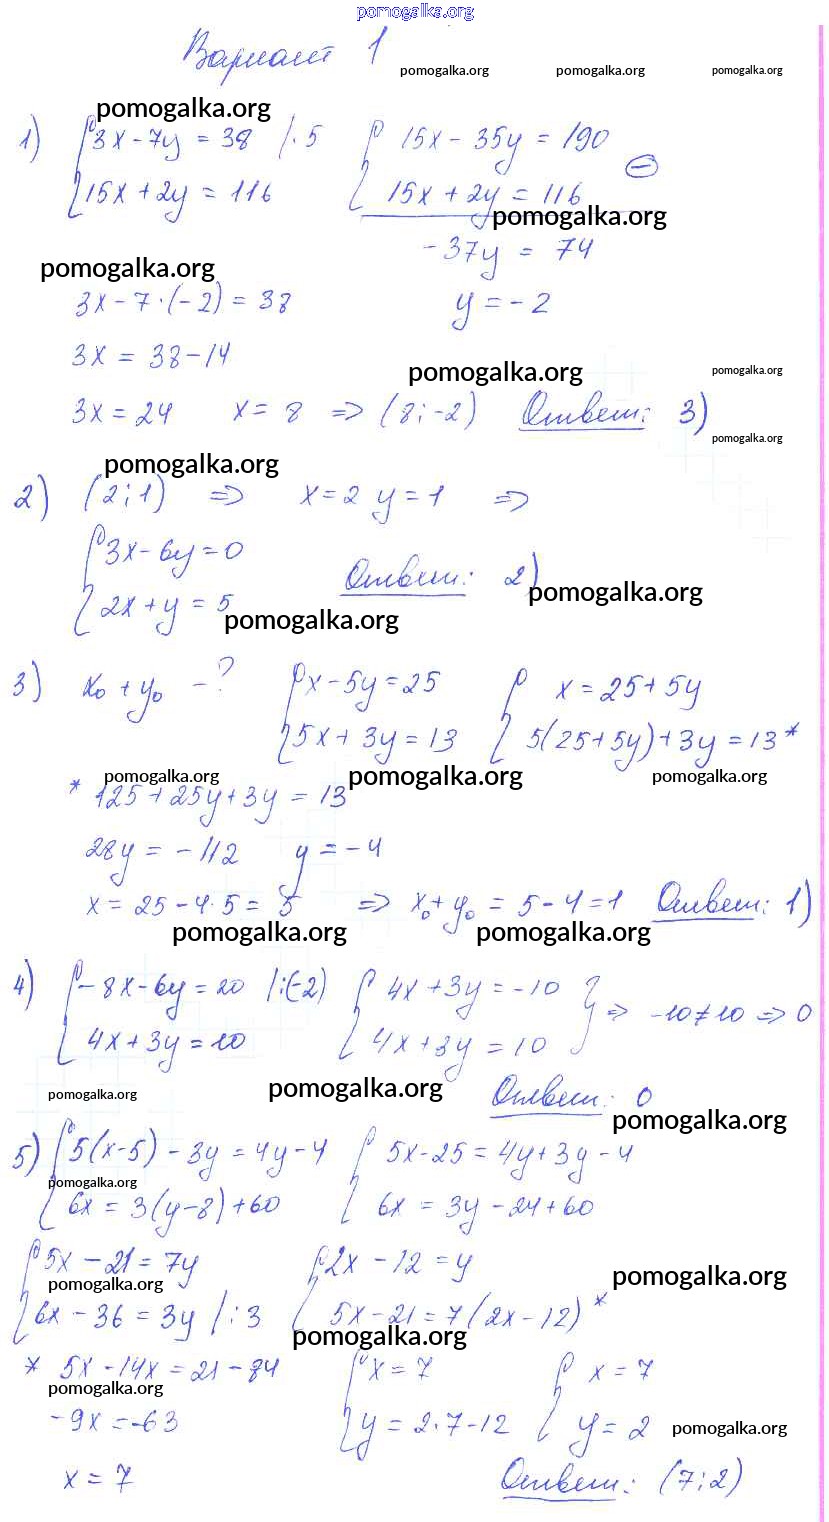 pomogalka.org
Вариант 1
pomogalka.org pomogalka.org pomogalka.org
pomogalka.org
1) { 3x - 7y = 38 /·5 { 15x - 35y = 190
15x + 2y = 116 15x + 2y = 116 (-)
pomogalka.org
-37y = 74
pomogalka.org
3x - 7·(-2) = 38 y = -2
3x = 38 - 14
pomogalka.org pomogalka.org
3x = 24 x = 8 => (8; -2) Ответ: 3)
pomogalka.org
pomogalka.org
2) (2; 1) => x = 2 y = 1 =>
{ 3x - 6y = 0
Ответ: 2)
pomogalka.org
2x + y = 5
pomogalka.org
3) x₀ + y₀ - ? { x - 5y = 25 { x = 25 + 5y
5x + 3y = 13 5(25 + 5y) + 3y = 13 *
pomogalka.org pomogalka.org pomogalka.org
* 125 + 25y + 3y = 13
28y = -112 y = -4
x = 25 - 4·5 = 5 => x₀ + y₀ = 5 - 4 = 1 Ответ: 1)
pomogalka.org pomogalka.org
4) { -8x - 6y = 20 /:(-2) { 4x + 3y = -10 } => -10 ≠ 10 => 0
4x + 3y = 10 4x + 3y = 10
pomogalka.org pomogalka.org
Ответ: 0
pomogalka.org
5) { 5(x-5) - 3y = 4y - 4 { 5x - 25 = 4y + 3y - 4
pomogalka.org
6x = 3(y-8) + 60 6x = 3y - 24 + 60
{ 5x - 21 = 7y { 2x - 12 = y
pomogalka.org pomogalka.org
6x - 36 = 3y /:3 5x - 21 = 7(2x - 12) *
pomogalka.org
* 5x - 14x = 21 - 84 { x = 7 { x = 7
pomogalka.org
-9x = -63 y = 2·7 - 12 y = 2
pomogalka.org
x = 7 Ответ: (7; 2)